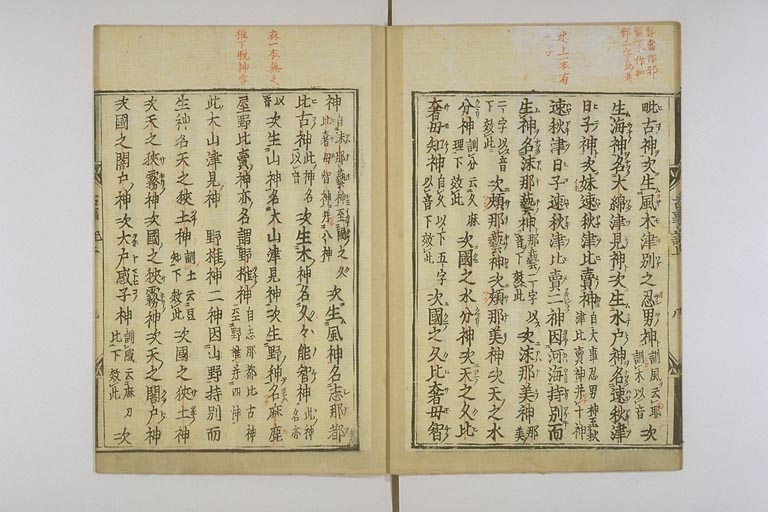 毗古神次生風木津別之忍男神訓風云耶訓木以音次
生海神名大綿津見神次生水戸神名速秋津
日子神次妹速秋津比賣神自大事忍男神至秋津比賣神并十神
速秋津日子速秋津比賣二神因河海持別而
生神名沫那藝神那藝二字以音下效此次沫那美神那美
二字以音下效此次頰那藝神次頰那美神次天之水
分神訓分云久麻理下效此次國之水分神次天之久比
奢母智神自久以下五字以音下效此次國之久比奢母智
神自沫那藝神至國之久比奢母智神并八神次生風神名志那都
比古神此神名以音次生木神名久々能智神此神名亦
以音次生山神名大山津見神次生野神名麻鹿
屋野比賣神亦名謂野椎神自志那都比古神至野椎并四神
此大山津見神野椎神二神因山野持別而
生神名天之狹土神訓土云豆知下效此次國之狹土神
次天之狹霧神次國之狹霧神次天之闇戸神
次國之闇戸神次大戸惑子神訓惑云麻刀比下效此次
麻一本無之
椎下脱神字